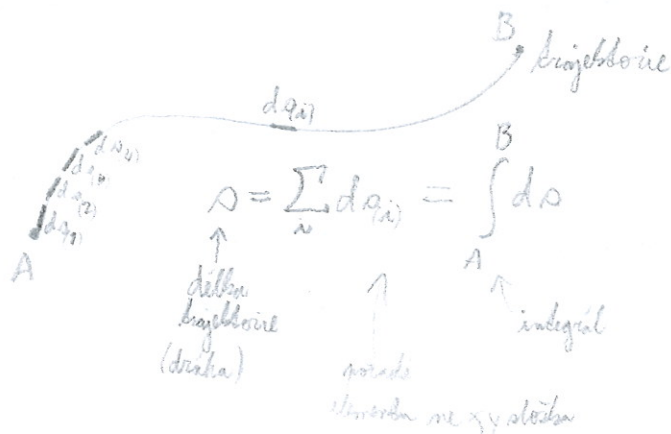 B
trajektorie
ds(i)
ds(4)
ds(3)
ds(2)
ds(1)
A
s = ∑ᵢ ds(i) = ∫_A^B ds
délka
trajektorie
(dráha)
integrál
pořadí
elementu ne x,y složka